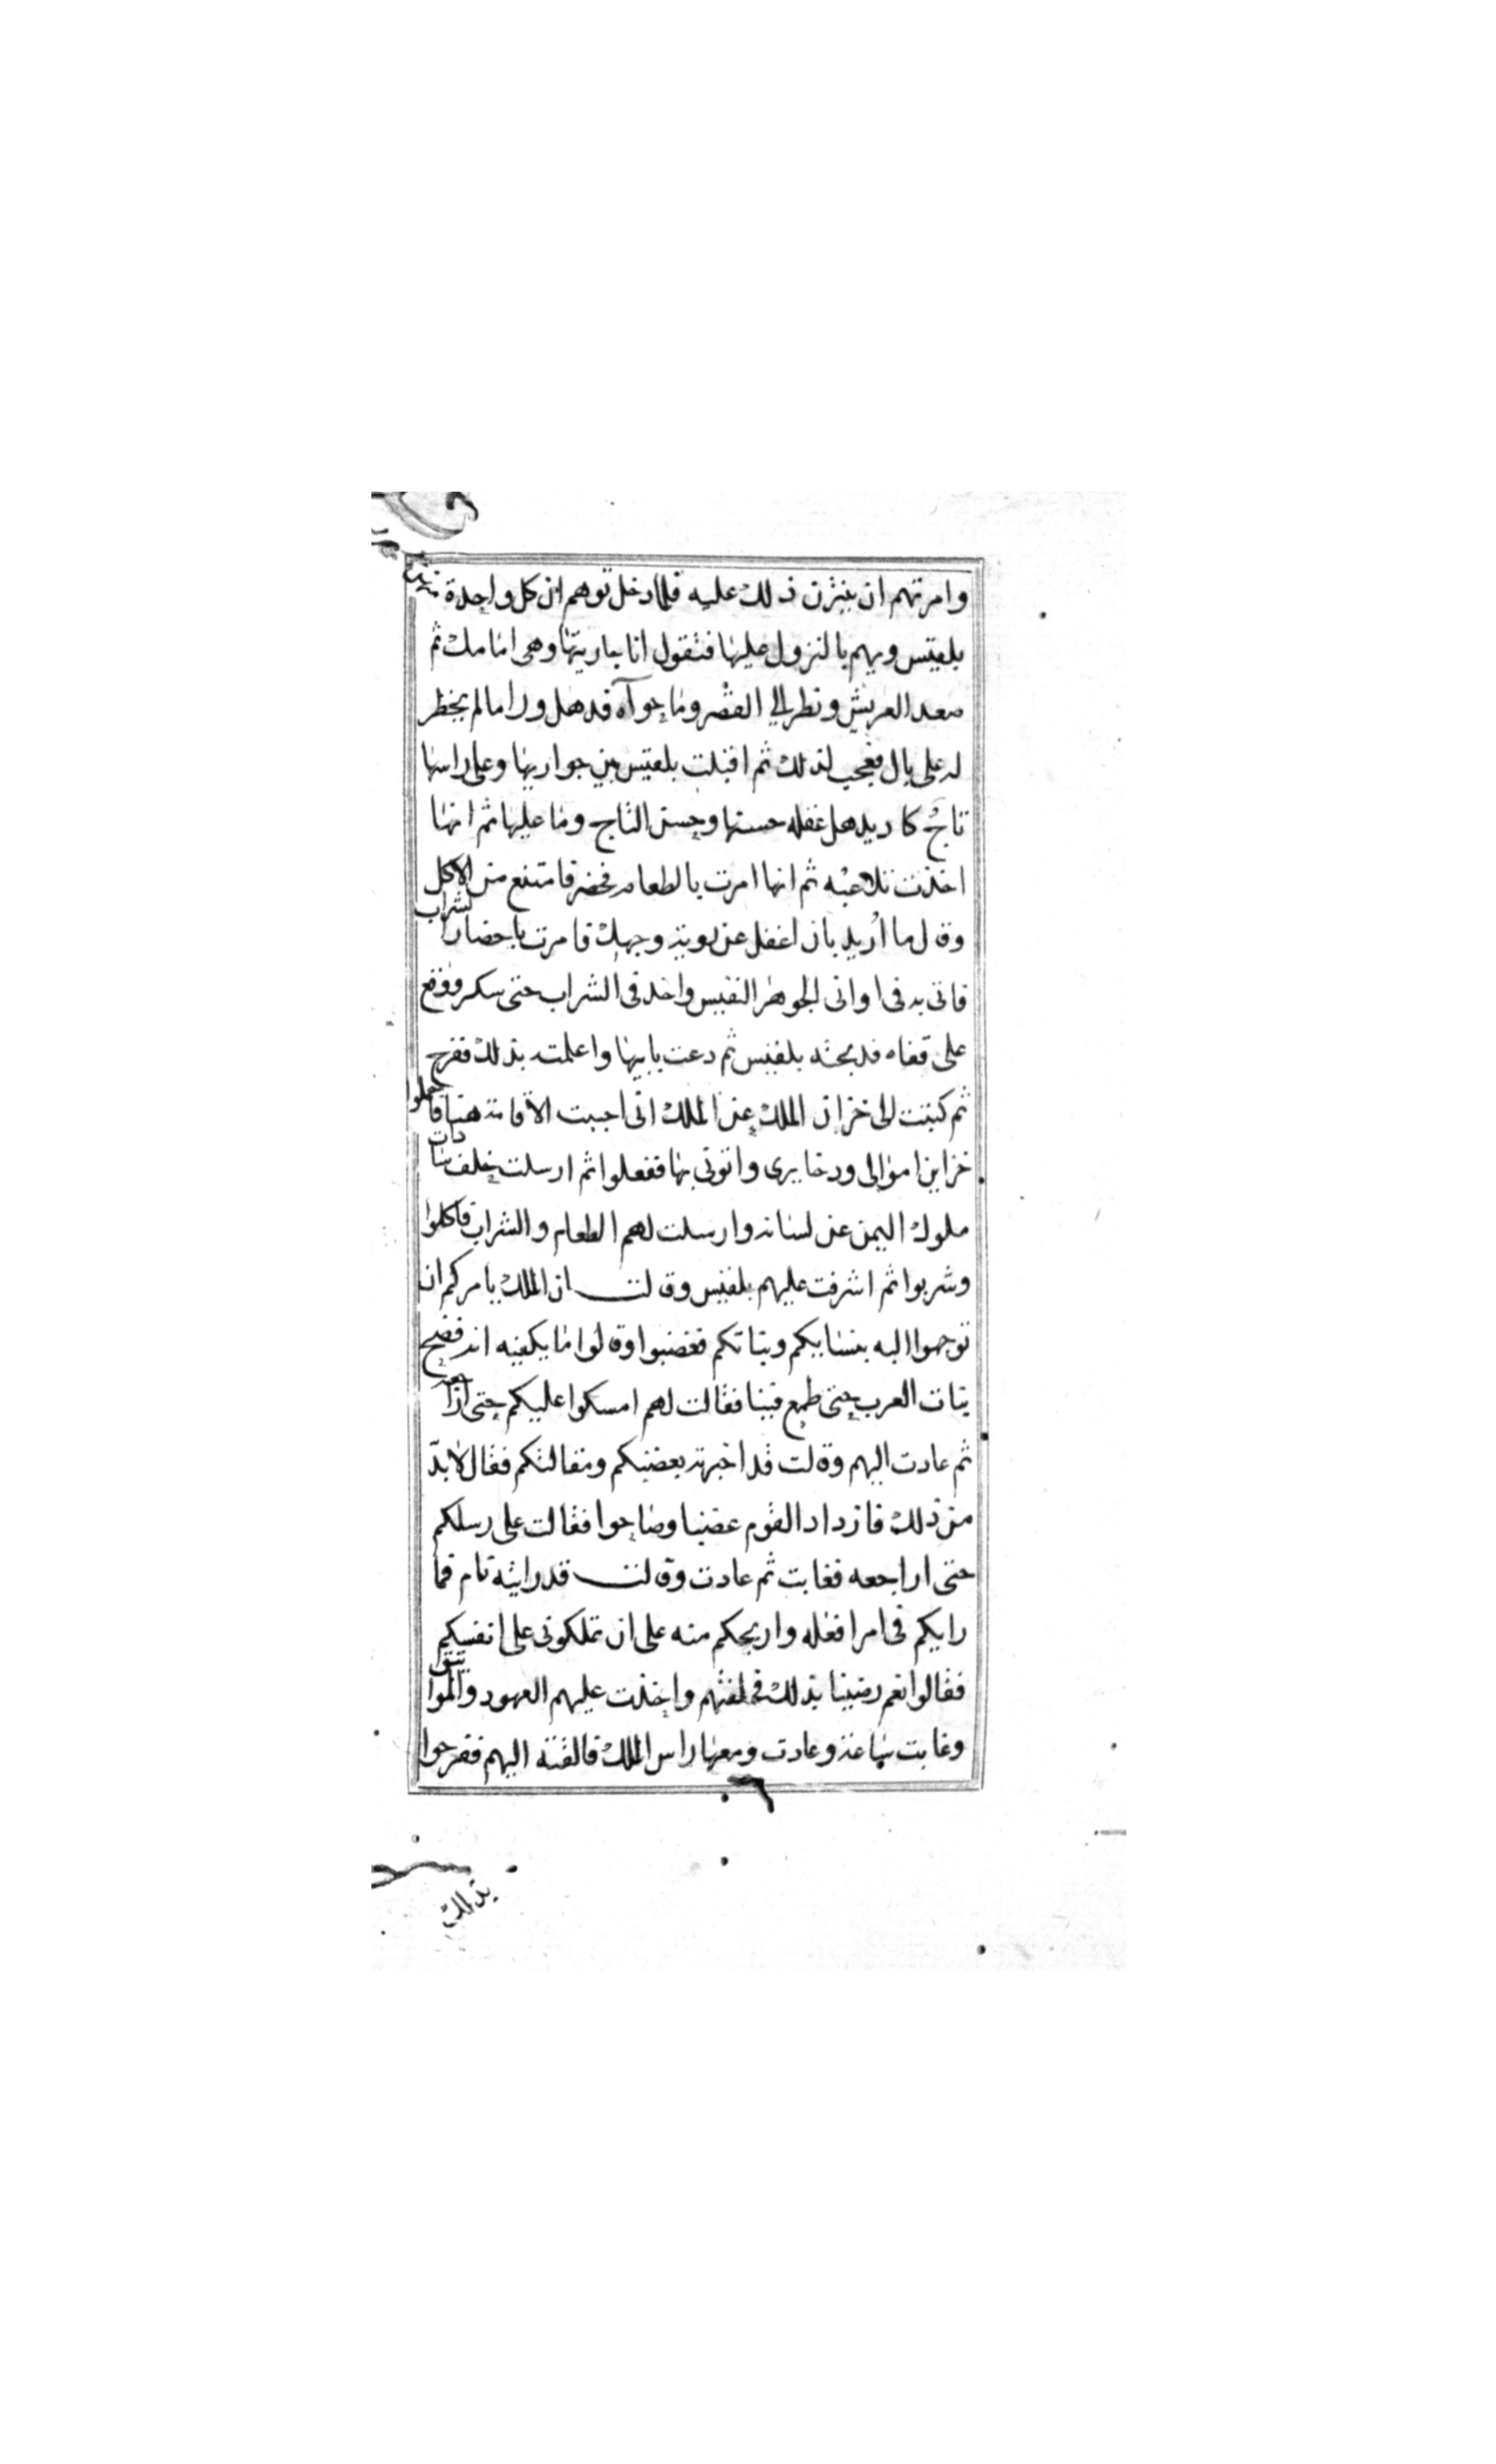 وامرتهم ان ينثرن ذلك عليه فلما دخل توهم ان كل واحدة منهن
بلقيس ويهم بالنزول عليها فتقول انا جاريتها وهى امامك ثم
صعد العريش ونظر الي القصر وما حواه فدهل وراا مالم يخطر
له على بال فعجب لذلك ثم اقبلت بلقيس بين جواريها وعلى راسها
تاج كاد يدهل عقله حسنها وحسن التاج وما عليها ثم انها
اخذت تلاعبه ثم انها امرت بالطعام فحضر فامتنع من الاكل
وقال ما اريد بان اغفل عن روية وجهك فامرت باحضار الشراب
فاتى به فى اوانى الجوهر النفيس واخذ فى الشراب حتى سكر ووقع
على قفاه فذبحته بلقيس ثم دعت بابيها واعلمته بذلك ففرح
ثم كتبت الى خزان الملك عن الملك انى احببت الاقامة هنا فاحملوا
خزاين اموالى ودخايرى واتونى بها ففعلوا ثم ارسلت خلف سادات
ملوك اليمن عن لسانه وارسلت لهم الطعام والشراب فاكلوا
وشربوا ثم اشرفت عليهم بلقيس وقالت ان الملك يامركم ان
توجهوا اليه بنسايكم وبناتكم فغضبوا وقالوا ما يكفيه انه فضح
بنات العرب حتى طمع فينا فقالت لهم امسكوا عليكم حتى اراجعه
ثم عادت اليهم وقالت قد اخبرته بغضبكم ومقالتكم فقال لا بدّ
من ذلك فازداد القوم غضبا وصاحوا فقالت على رسلكم
حتى اراجعه فغابت ثم عادت وقالت قد رايته نام فما
رايكم فى امر افعله واريحكم منه على ان تملكونى على انفسكم
فقالوا نعم رضينا بذلك فحلفتهم واخذت عليهم العهود والمواثيق
وغابت ساعة وعادت ومعها راس الملك فالقته اليهم ففرحوا
بذلك